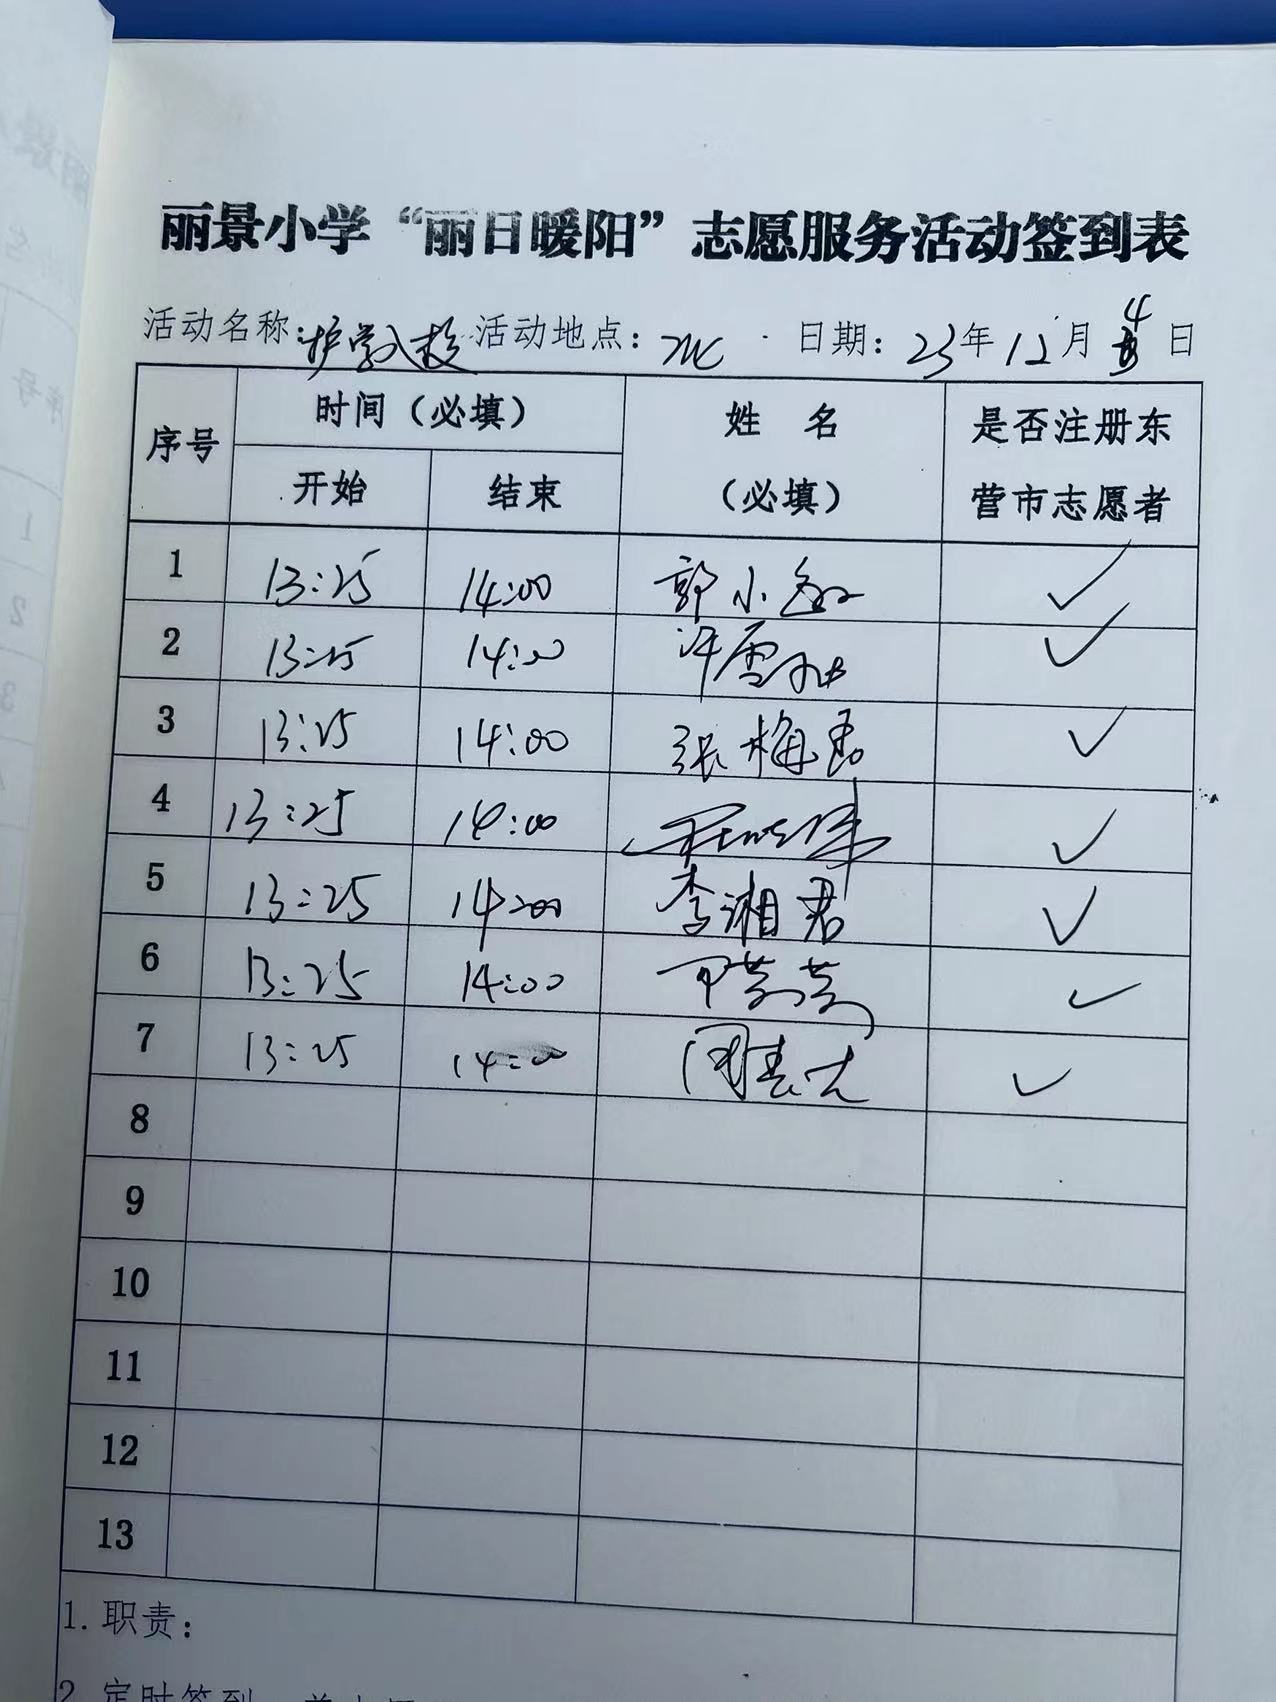 丽景小学“丽日暖阳”志愿服务活动签到表
活动名称:护学入校 活动地点: 日期:23年12月4日
序号 时间(必填) 姓 名(必填) 是否注册东营市志愿者
开始 结束
1 13:25 14:00 郭小 ✓
2 13:25 14:00 许雪 ✓
3 13:25 14:00 张梅 ✓
4 13:25 14:00 ✓
5 13:25 14:00 李湘君 ✓
6 13:25 14:00 ✓
7 13:25 14:00 ✓
8
9
10
11
12
13
1.职责:
2.定时签到